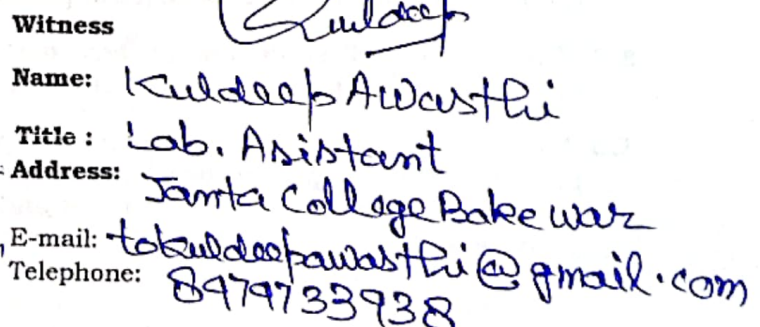 Witness Kuldeep
Name: Kuldeep Awasthi
Title : Lab. Asistant
Address:
Janta College Bakewar
E-mail: tokuldeepawasthi@gmail.com
Telephone: 8979733938